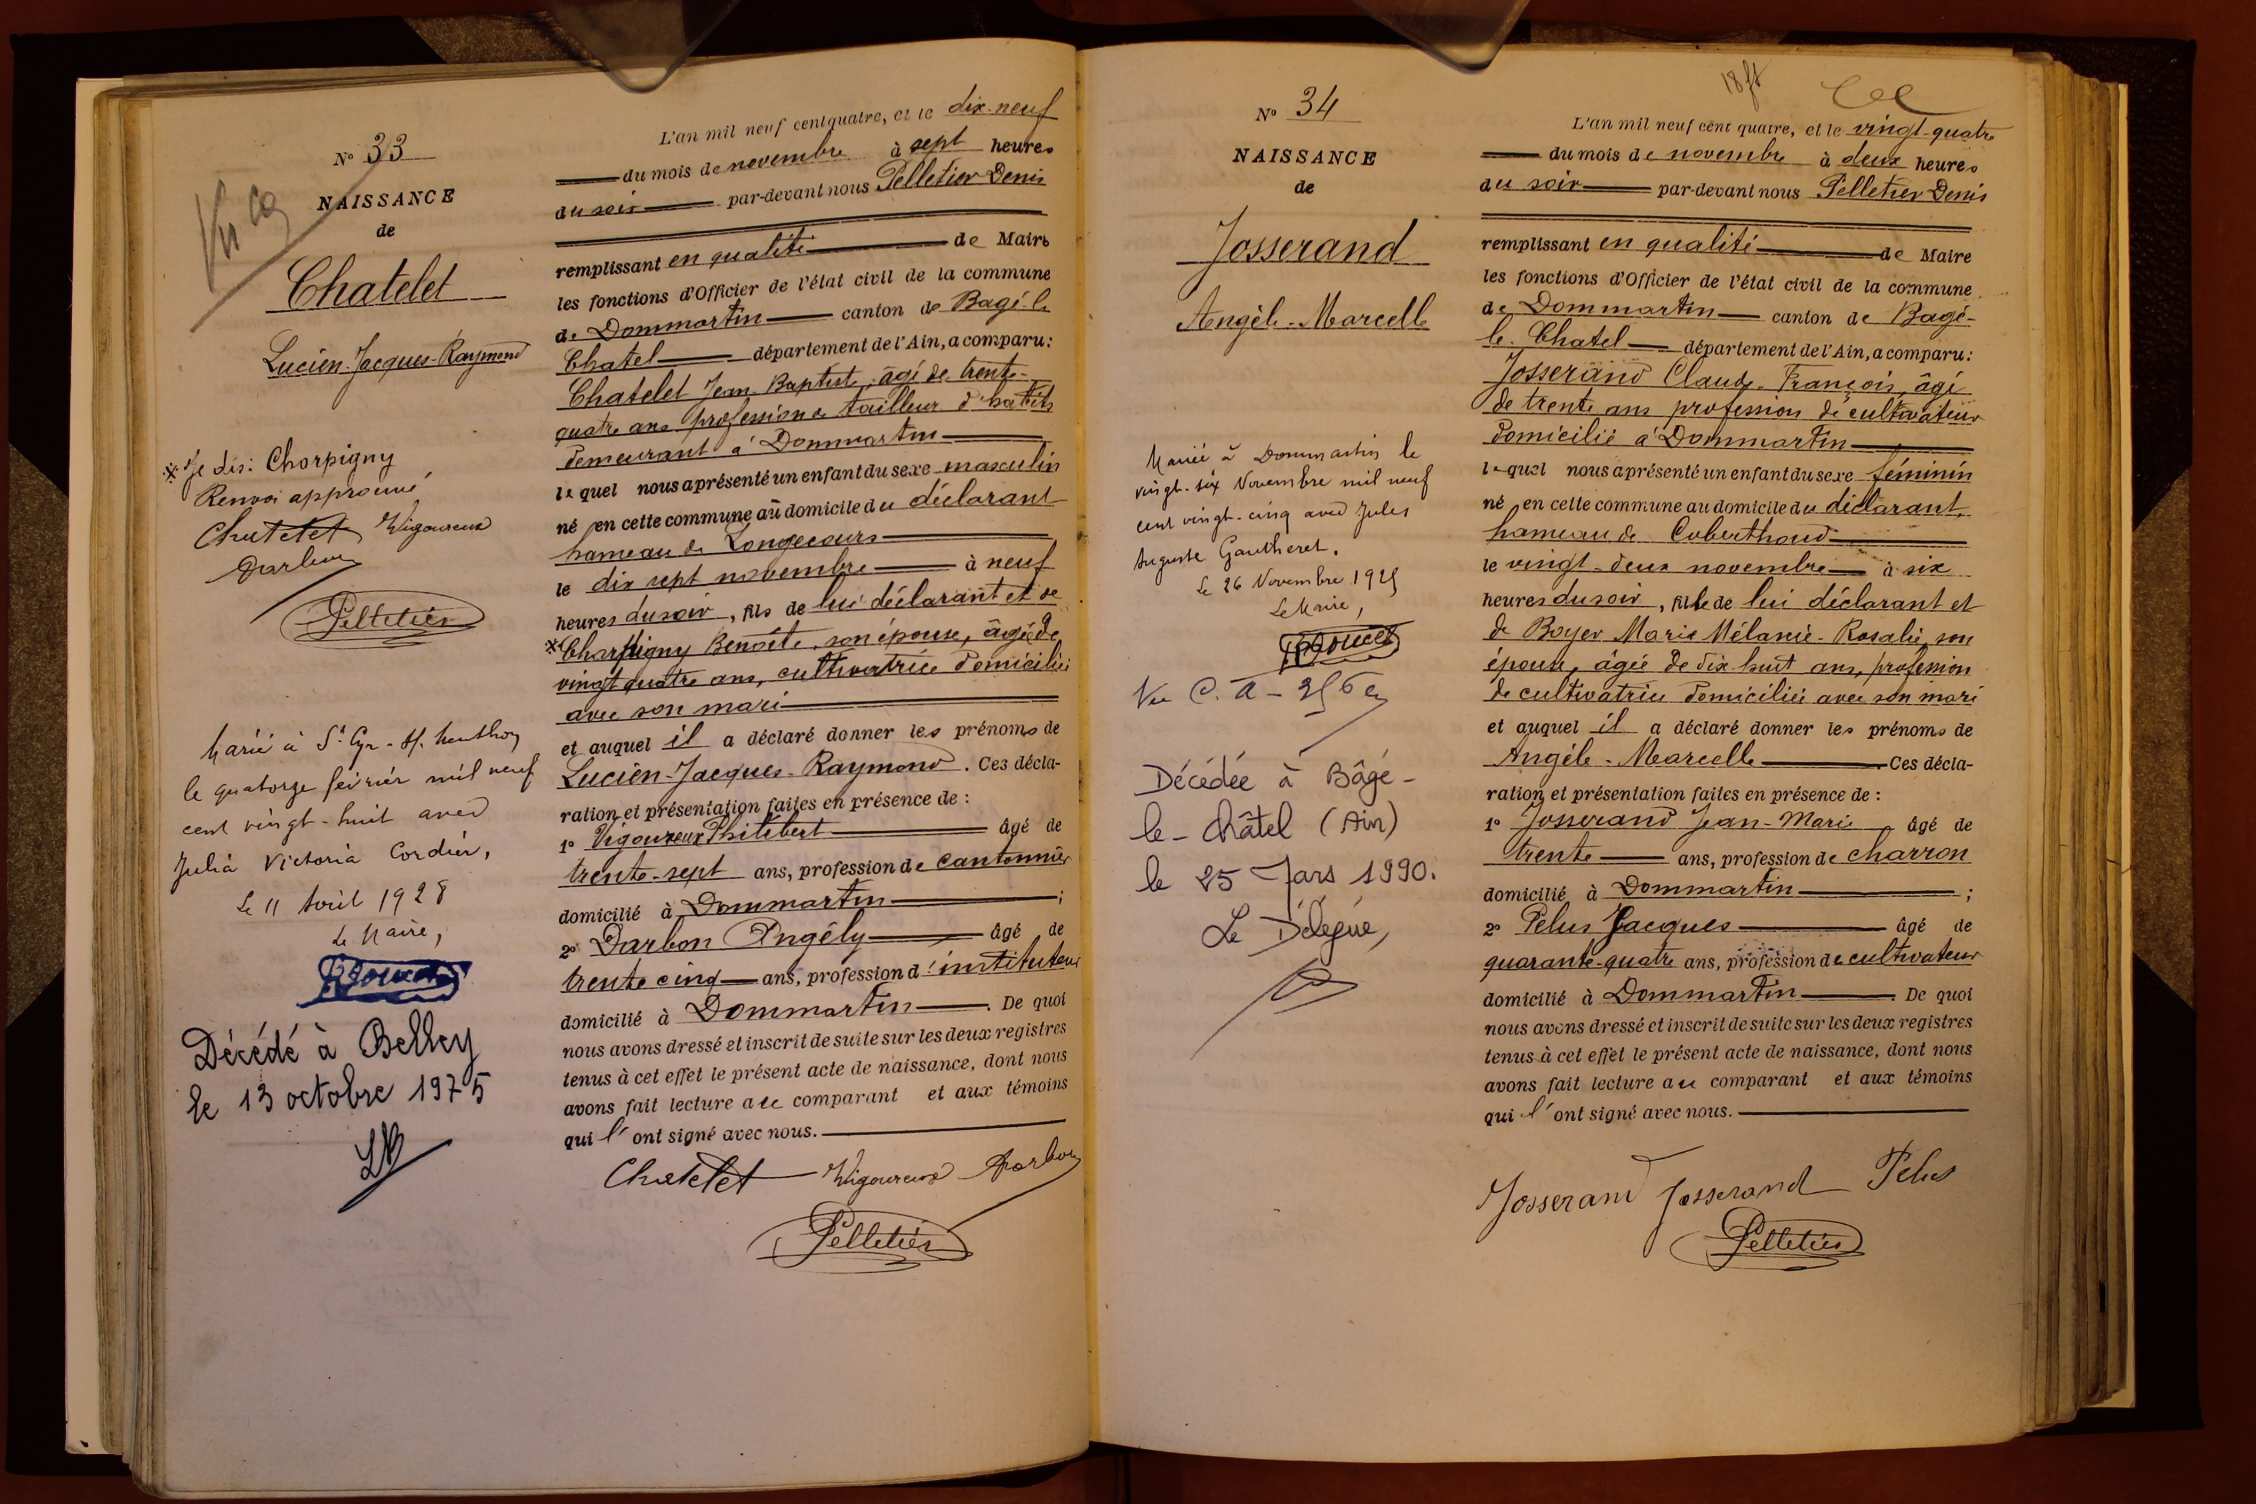 N° 33
NAISSANCE
de
Chatelet
Lucien-Jacques-Raymond
* Je dis: Chorpigny
Renvoi approuvé
Chatelet Vigoureux
Darbon
Pelletier
Marié à St Cyr-s/-Menthon
le quatorze février mil neuf
cent vingt-huit avec
Julia Victoria Cordier,
Le 11 Avril 1928
Le Maire,
Décédé à Belley
le 13 octobre 1975
L'an mil neuf cent quatre, et le dix-neuf
du mois de novembre à sept heures
du soir par-devant nous Pelletier Denis
remplissant en qualité de Maire
les fonctions d'Officier de l'état civil de la commune
de Dommartin canton de Bagé-le
Chatel département de l'Ain, a comparu:
Chatelet Jean Baptiste, âgé de trente-
quatre ans profession de tailleur d'habits
demeurant à Dommartin
lequel nous a présenté un enfant du sexe masculin
né en cette commune au domicile du déclarant
hameau de Longecours
le dix sept novembre à neuf
heures du soir, fils de lui déclarant et de
* Charpigny Benoîte, son épouse, âgée de
vingt quatre ans, cultivatrice domiciliée
avec son mari
et auquel il a déclaré donner les prénoms de
Lucien-Jacques-Raymond. Ces décla-
ration et présentation faites en présence de :
1° Vigoureux Philibert âgé de
trente-sept ans, profession de cantonnier
domicilié à Dommartin ;
2° Darbon Angély âgé de
trente cinq ans, profession d'instituteur
domicilié à Dommartin. De quoi
nous avons dressé et inscrit de suite sur les deux registres
tenus à cet effet le présent acte de naissance, dont nous
avons fait lecture au comparant et aux témoins
qui l'ont signé avec nous.
Chatelet Vigoureux Darbon
Pelletier
N° 34
NAISSANCE
de
Josserand
Angèle-Marcelle
Mariée à Dommartin le
vingt-six Novembre mil neuf
cent vingt-cinq avec Jules
Auguste Gautheret.
Le 26 Novembre 1925
Le Maire,
Décédée à Bâgé-
le-Châtel (Ain)
le 25 Mars 1990.
Le Délégué,
L'an mil neuf cent quatre, et le vingt-quatre
du mois de novembre à deux heures
du soir par-devant nous Pelletier Denis
remplissant en qualité de Maire
les fonctions d'Officier de l'état civil de la commune
de Dommartin canton de Bagé-
le-Chatel département de l'Ain, a comparu:
Josserand Claude-François, âgé
de trente ans profession de cultivateur
domicilié à Dommartin
lequel nous a présenté un enfant du sexe féminin
né en cette commune au domicile du déclarant,
hameau de Coberthoud
le vingt-deux novembre à six
heures du soir, fille de lui déclarant et
de Boyer Marie Mélanie-Rosalie, son
épouse, âgée de dix huit ans, profession
de cultivatrice domiciliée avec son mari
et auquel il a déclaré donner les prénoms de
Angèle-Marcelle. Ces décla-
ration et présentation faites en présence de :
1° Josserand Jean-Marie âgé de
trente ans, profession de charron
domicilié à Dommartin ;
2° Pelus Jacques âgé de
quarante-quatre ans, profession de cultivateur
domicilié à Dommartin. De quoi
nous avons dressé et inscrit de suite sur les deux registres
tenus à cet effet le présent acte de naissance, dont nous
avons fait lecture au comparant et aux témoins
qui l'ont signé avec nous.
Josserand Josserand Pelus
Pelletier